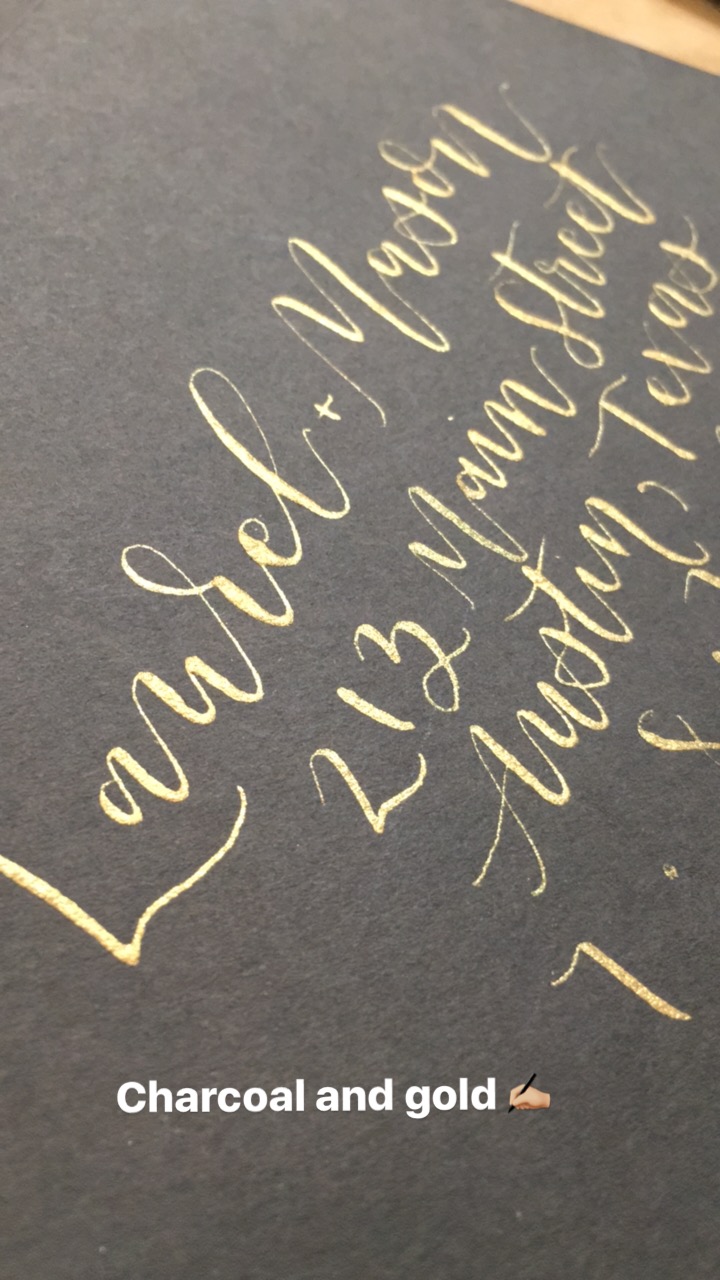 Laurel + Mason
213 Main Street
Austin, Texas
7
Charcoal and gold ✍🏼